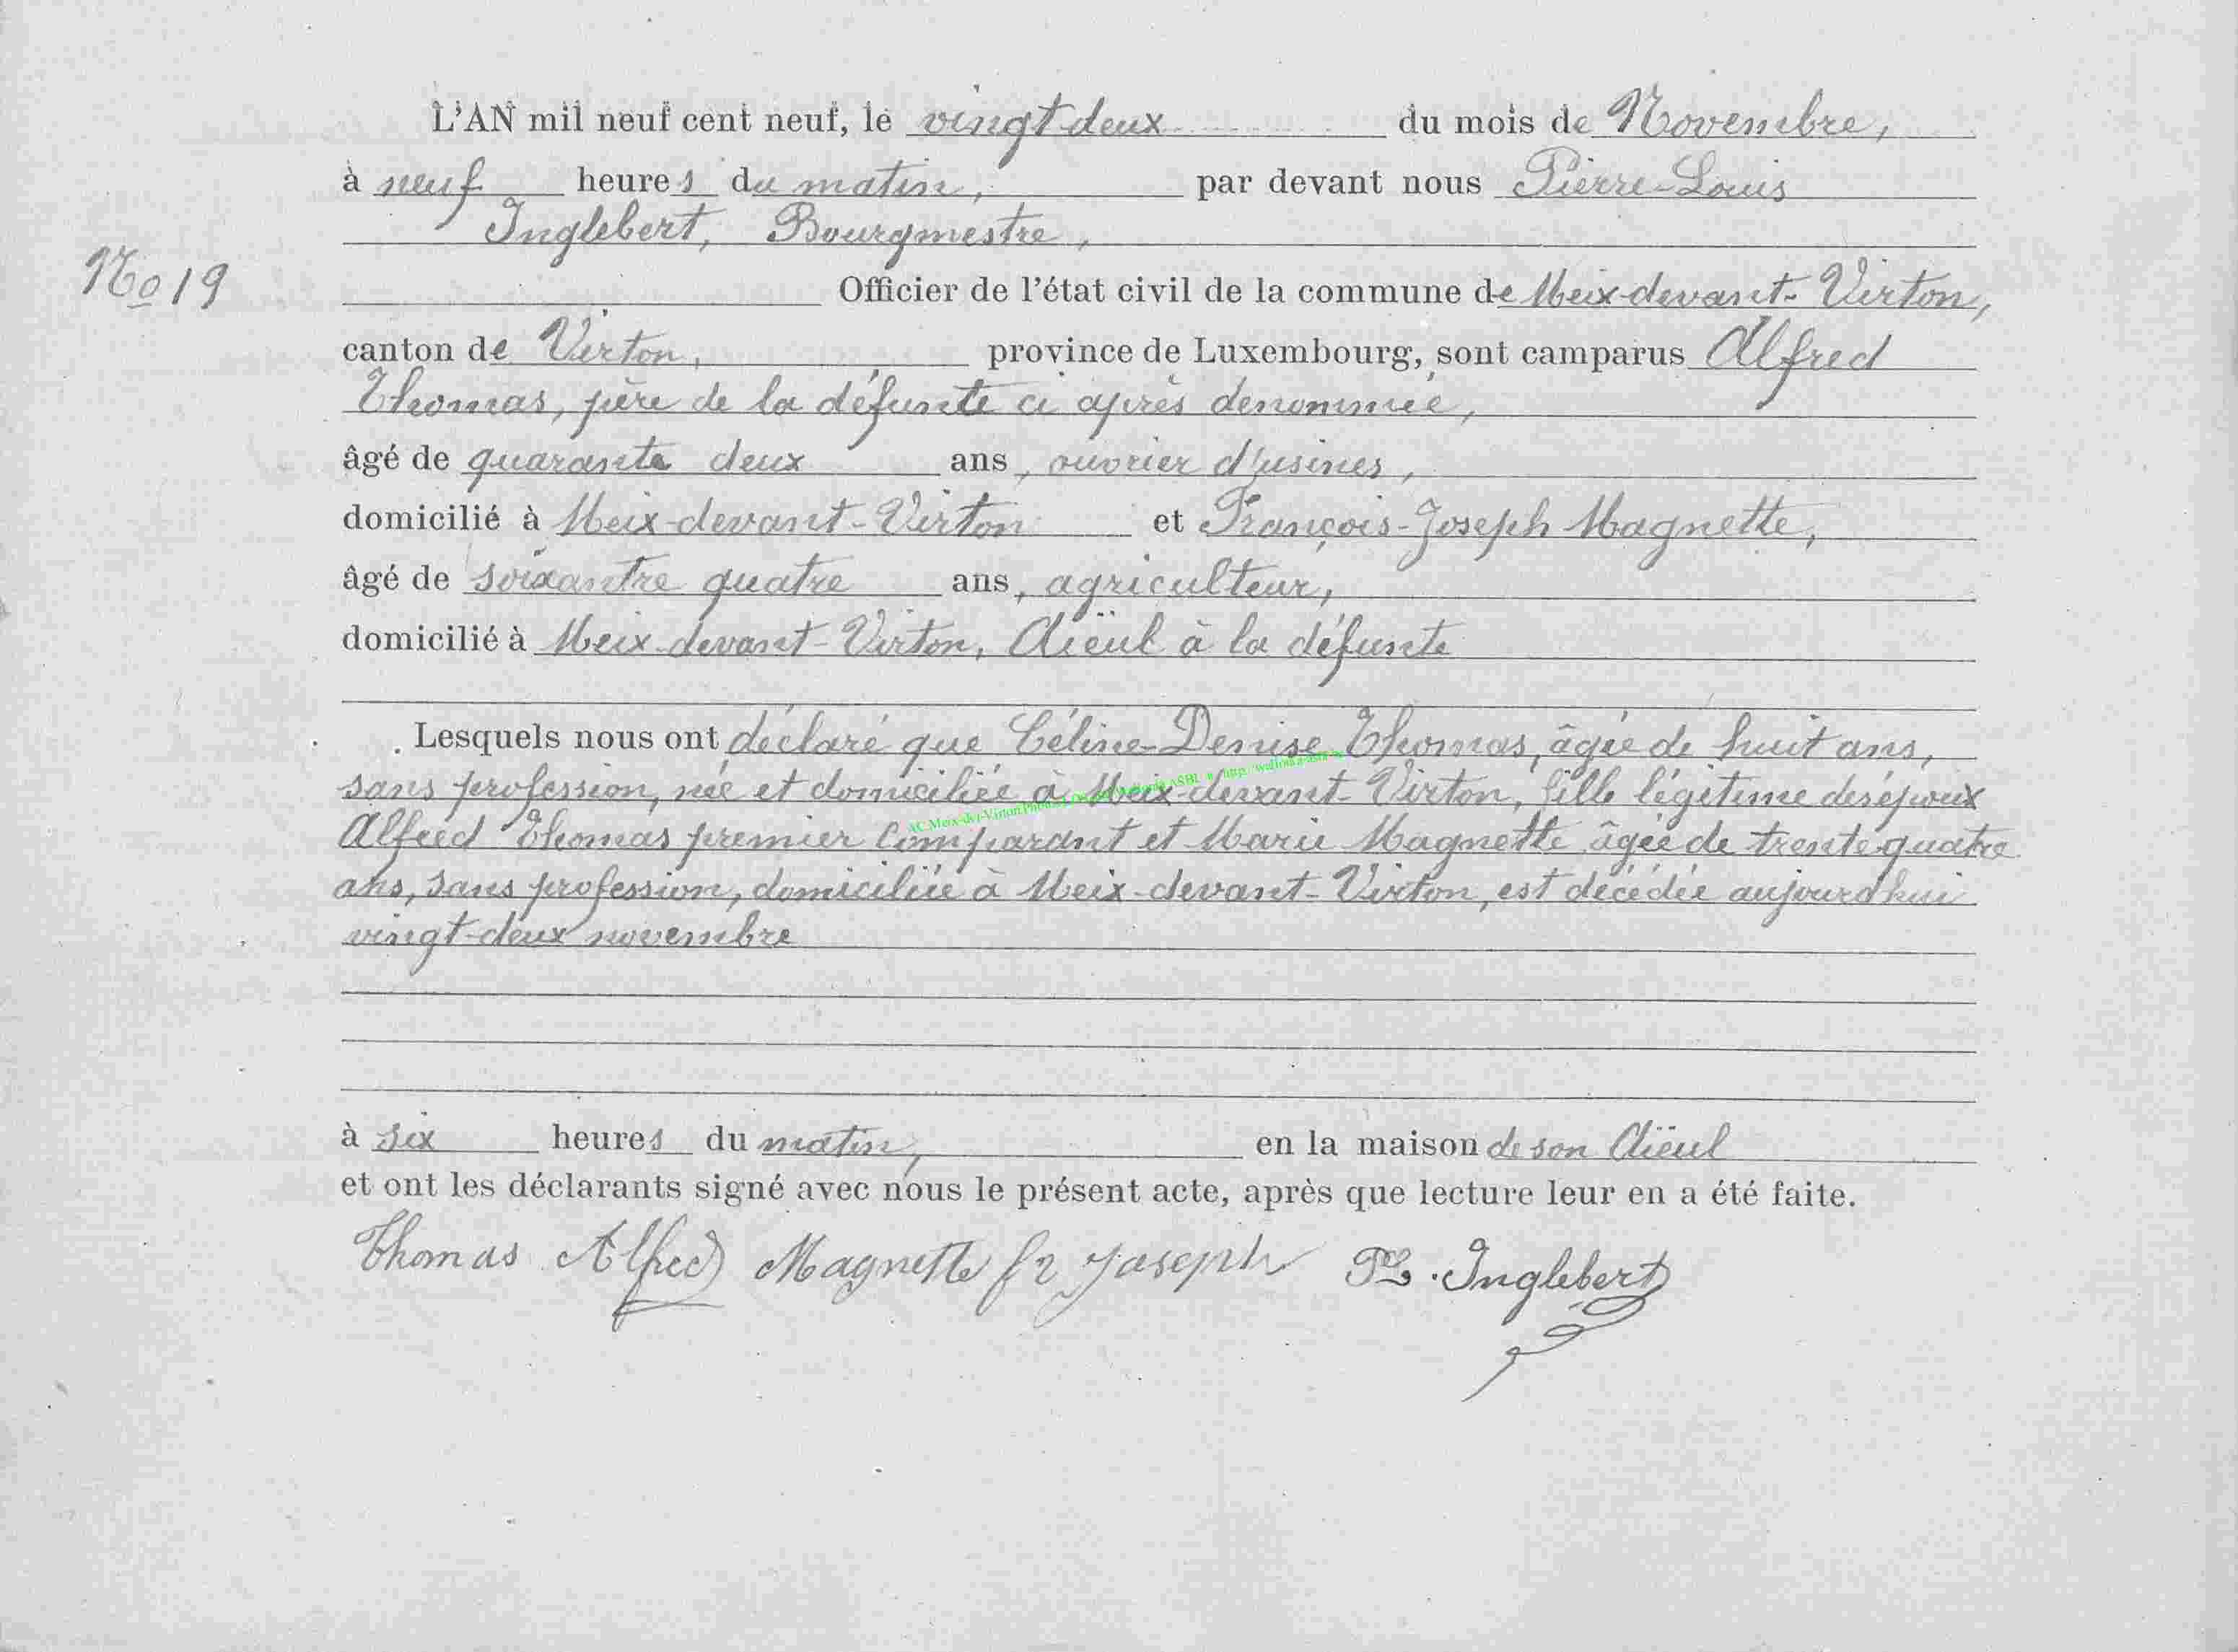 L'AN mil neuf cent neuf, le vingt-deux du mois de Novembre,
à neuf heures du matin, par devant nous Pierre-Louis
Inglebert, Bourgmestre,
No 19
Officier de l'état civil de la commune de Meix-devant-Virton,
canton de Virton, province de Luxembourg, sont camparus Alfred
Thomas, père de la défunte ci après dénommée,
âgé de quarante deux ans, ouvrier d'usines,
domicilié à Meix-devant-Virton et François-Joseph Magnette,
âgé de soixantre quatre ans, agriculteur,
domicilié à Meix-devant-Virton, Aïeul à la défunte
Lesquels nous ont déclaré que Céline-Denise Thomas, âgée de huit ans,
sans profession, née et domiciliée à Meix-devant-Virton, fille légitime des époux
Alfred Thomas premier Comparant et Marie Magnette âgée de trente-quatre
ans, sans profession, domiciliée à Meix-devant-Virton, est décédée aujourd'hui
vingt-deux novembre
à six heures du matin, en la maison de son Aïeul
et ont les déclarants signé avec nous le présent acte, après que lecture leur en a été faite.
Thomas Alfred Magnette fr Joseph PL. Inglebert